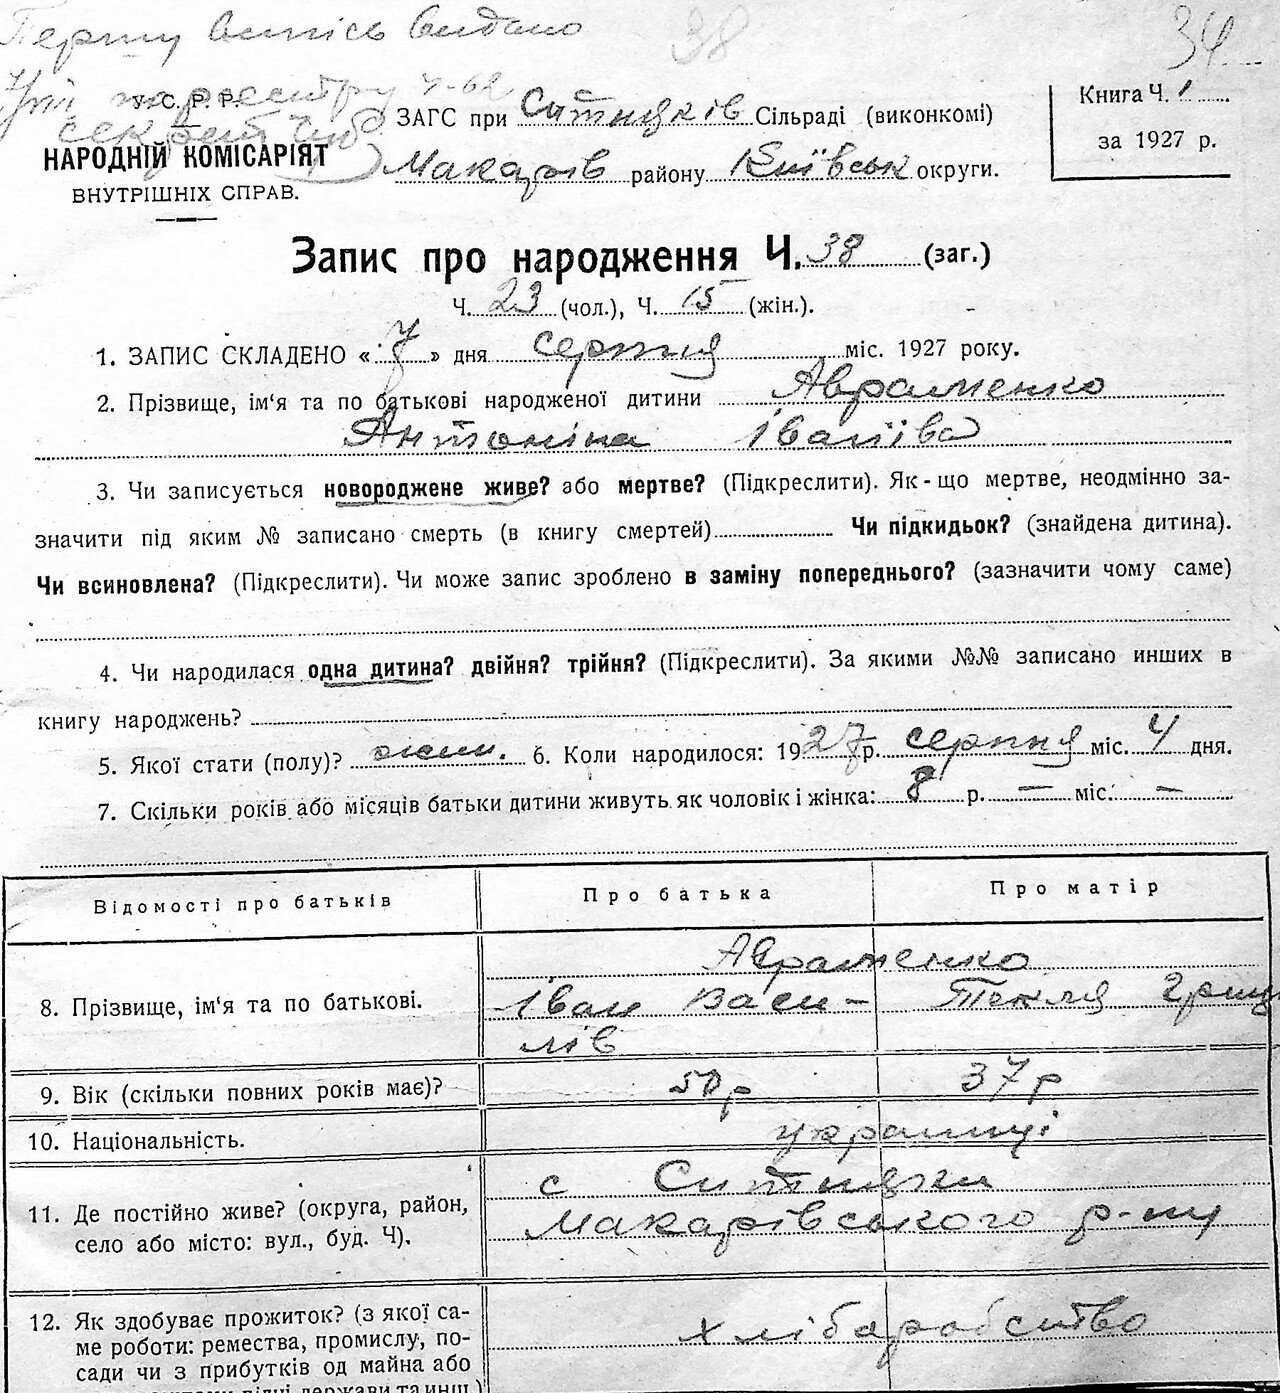 Першу випись видано
38
34
У.С.Р.Р.
по реєстру ч-62
НАРОДНІЙ КОМІСАРІЯТ
ВНУТРІШНІХ СПРАВ.
ЗАГС при Ситняків Сільраді (виконкомі)
Макарів району Київськ округи.
Книга Ч. 1
за 1927 р.
Запис про народження Ч. 38 (заг.)
Ч. 23 (чол.), Ч. 15 (жін.).
1. ЗАПИС СКЛАДЕНО « 7 » дня серпня міс. 1927 року.
2. Прізвище, ім‘я та по батькові народженої дитини Авраменко
Антоніна Іванівa
3. Чи записується новороджене живе? або мертве? (Підкреслити). Як-що мертве, неодмінно за-
значити під яким № записано смерть (в книгу смертей) Чи підкидьок? (знайдена дитина).
Чи всиновлена? (Підкреслити). Чи може запис зроблено в заміну попереднього? (зазначити чому саме)
4. Чи народилася одна дитина? двійня? трійня? (Підкреслити). За якими №№ записано инших в
книгу народжень?
5. Якої стати (полу)? жін. 6. Коли народилося: 1927 р. серпня міс. 4 дня.
7. Скільки років або місяців батьки дитини живуть як чоловік і жінка: 8 р. — міс. —
Відомості про батьків
Про батька
Про матір
8. Прізвище, ім‘я та по батькові.
Авраменко
Іван Васи- Текля Гриц
лів
9. Вік (скільки повних років має)? 50 р 37 р
10. Національність. українці
11. Де постійно живе? (округа, район,
село або місто: вул., буд. Ч).
с Ситняки
Макарівського р-ну
12. Як здобуває прожиток? (з якої са-
ме роботи: ремества, промислу, по-
сади чи з прибутків од майна або
хліборобство